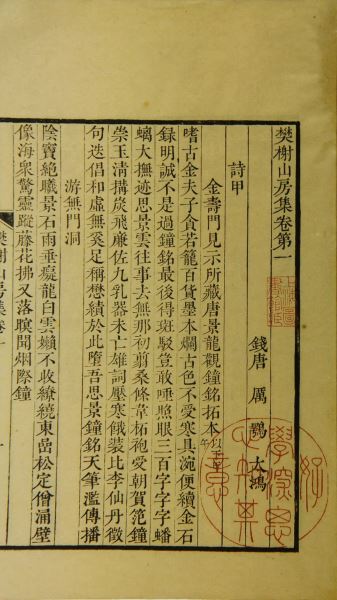 樊榭山房集卷第一
錢唐 厲鶚 太鴻
詩甲
金壽門見示所藏唐景龍觀鐘銘拓本
嗜古金夫子貪若籠百貨墨本爛古色不受寒具涴便續金石
録明誠不是過鐘銘最後得斑駁豈敢唾照眼三百字字字蟠
螭大撫迹思景雲往事去無那初翦桑條韋柘袍受朝賀笵鐘
崇玉清搆炭飛廉佐九乳器未亡雄詞壓寒餓装比李仙丹徵
句迭倡和虛無奚足稱懋績於此墮吾思景鐘銘天筆濫傳播
遊無門洞
陰竇絶曦景石雨垂癡龍白雲嬾不收繚繞東嵒松定僧涌壁
像海衆驚靈蹤藤花拂又落暝聞烟際鐘
樊榭山房集卷一
好學深思心知其意